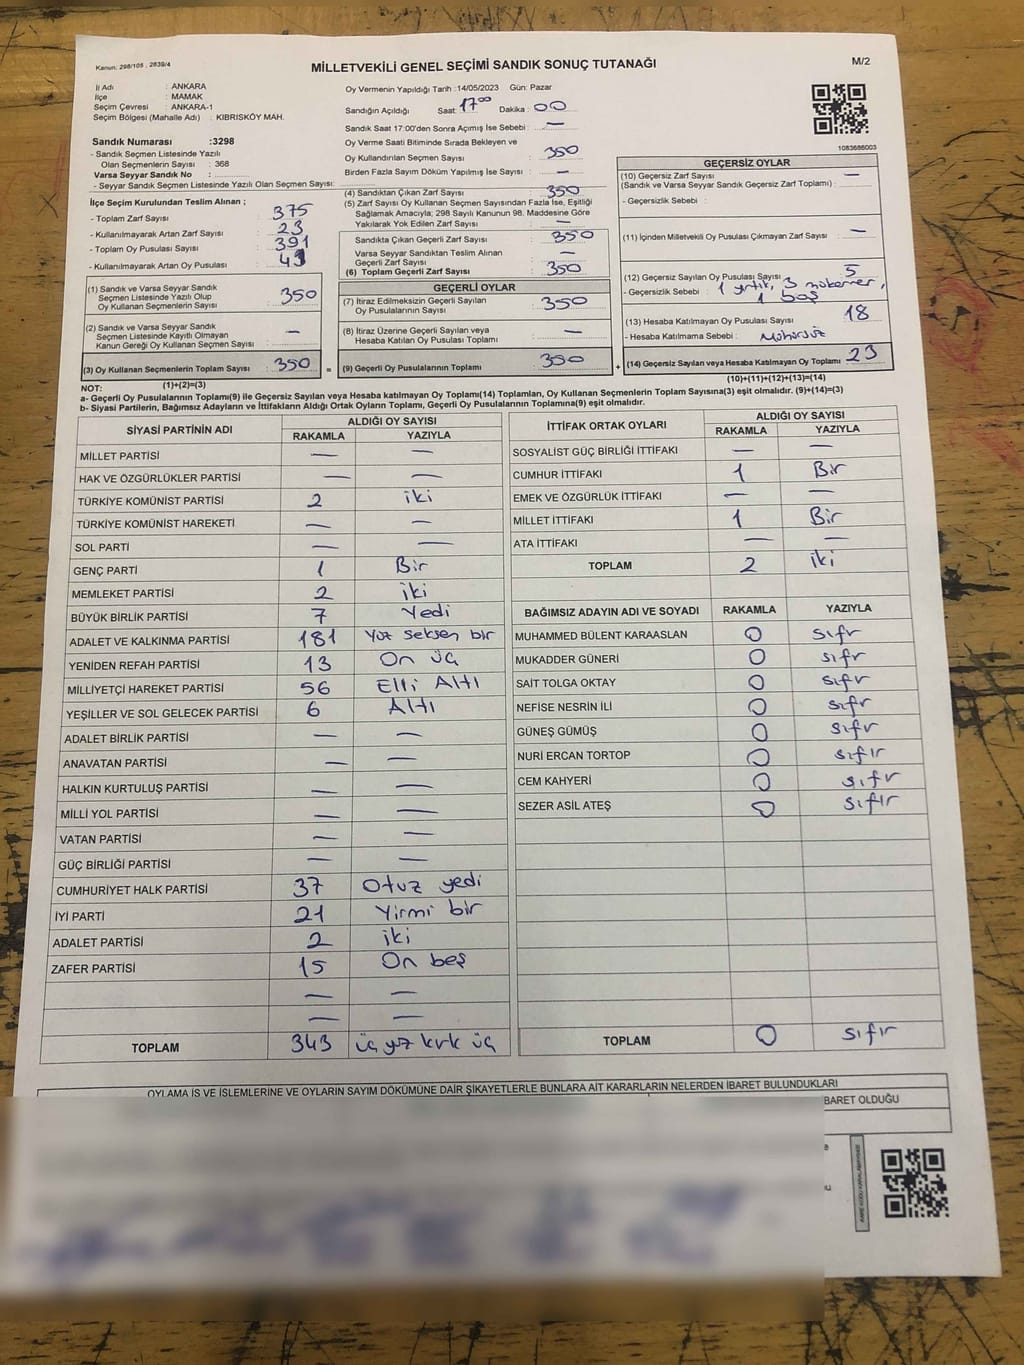 Kanun: 298/105 , 2839/4
MİLLETVEKİLİ GENEL SEÇİMİ SANDIK SONUÇ TUTANAĞI
M/2
İl Adı : ANKARA
İlçe : MAMAK
Seçim Çevresi : ANKARA-1
Seçim Bölgesi (Mahalle Adı) : KIBRISKÖY MAH.
Sandık Numarası :3298
- Sandık Seçmen Listesinde Yazılı
Olan Seçmenlerin Sayısı : 368
Varsa Seyyar Sandık No :
- Seyyar Sandık Seçmen Listesinde Yazılı Olan Seçmen Sayısı:
İlçe Seçim Kurulundan Teslim Alınan ;
- Toplam Zarf Sayısı : 375
- Kullanılmayarak Artan Zarf Sayısı : 23
- Toplam Oy Pusulası Sayısı : 391
- Kullanılmayarak Artan Oy Pusulası : 41
(1) Sandık ve Varsa Seyyar Sandık
Seçmen Listesinde Yazılı Olup
Oy Kullanan Seçmenlerin Sayısı : 350
(2) Sandık ve Varsa Seyyar Sandık
Seçmen Listesinde Kayıtlı Olmayan
Kanun Gereği Oy Kullanan Seçmen Sayısı : —
(3) Oy Kullanan Seçmenlerin Toplam Sayısı : 350
(1)+(2)=(3)
Oy Vermenin Yapıldığı Tarih :14/05/2023 Gün: Pazar
Sandığın Açıldığı Saat: 17:00 Dakika : 00
Sandık Saat 17:00'den Sonra Açımış İse Sebebi : —
Oy Verme Saati Bitiminde Sırada Bekleyen ve
Oy Kullandırılan Seçmen Sayısı : 350
Birden Fazla Sayım Döküm Yapılmış İse Sayısı : —
(4) Sandıktan Çıkan Zarf Sayısı : 350
(5) Zarf Sayısı Oy Kullanan Seçmen Sayısından Fazla İse, Eşitliği
Sağlamak Amacıyla; 298 Sayılı Kanunun 98. Maddesine Göre
Yakılarak Yok Edilen Zarf Sayısı : —
Sandıkta Çıkan Geçerli Zarf Sayısı : 350
Varsa Seyyar Sandıktan Teslim Alınan
Geçerli Zarf Sayısı : —
(6) Toplam Geçerli Zarf Sayısı : 350
GEÇERLİ OYLAR
(7) İtiraz Edilmeksizin Geçerli Sayılan
Oy Pusulalarının Sayısı : 350
(8) İtiraz Üzerine Geçerli Sayılan veya
Hesaba Katılan Oy Pusulası Toplamı : —
= (9) Geçerli Oy Pusulalarının Toplamı : 350
1083686003
GEÇERSİZ OYLAR
(10) Geçersiz Zarf Sayısı
(Sandık ve Varsa Seyyar Sandık Geçersiz Zarf Toplamı) : —
- Geçersizlik Sebebi :
(11) İçinden Milletvekili Oy Pusulası Çıkmayan Zarf Sayısı : —
(12) Geçersiz Sayılan Oy Pusulası Sayısı : 5
- Geçersizlik Sebebi : 1 yırtık, 3 mükerrer,
1 boş
(13) Hesaba Katılmayan Oy Pusulası Sayısı : 18
- Hesaba Katılmama Sebebi : Mühürsüz
+ (14) Geçersiz Sayılan veya Hesaba Katılmayan Oy Toplamı : 23
(10)+(11)+(12)+(13)=(14)
NOT:
a- Geçerli Oy Pusulalarının Toplamı(9) ile Geçersiz Sayılan veya Hesaba katılmayan Oy Toplamı(14) Toplamları, Oy Kullanan Seçmenlerin Toplam Sayısına(3) eşit olmalıdır. (9)+(14)=(3)
b- Siyasi Partilerin, Bağımsız Adayların ve İttifakların Aldığı Ortak Oyların Toplamı, Geçerli Oy Pusulalarının Toplamına(9) eşit olmalıdır.
SİYASİ PARTİNİN ADI ALDIĞI OY SAYISI
RAKAMLA YAZIYLA
MİLLET PARTİSİ — —
HAK VE ÖZGÜRLÜKLER PARTİSİ — —
TÜRKİYE KOMÜNİST PARTİSİ 2 iki
TÜRKİYE KOMÜNİST HAREKETİ — —
SOL PARTİ — —
GENÇ PARTİ 1 Bir
MEMLEKET PARTİSİ 2 iki
BÜYÜK BİRLİK PARTİSİ 7 Yedi
ADALET VE KALKINMA PARTİSİ 181 Yüz seksen bir
YENİDEN REFAH PARTİSİ 13 On üç
MİLLİYETÇİ HAREKET PARTİSİ 56 Elli Altı
YEŞİLLER VE SOL GELECEK PARTİSİ 6 Altı
ADALET BİRLİK PARTİSİ — —
ANAVATAN PARTİSİ — —
HALKIN KURTULUŞ PARTİSİ — —
MİLLİ YOL PARTİSİ — —
VATAN PARTİSİ — —
GÜÇ BİRLİĞİ PARTİSİ — —
CUMHURİYET HALK PARTİSİ 37 Otuz yedi
İYİ PARTİ 21 Yirmi bir
ADALET PARTİSİ 2 iki
ZAFER PARTİSİ 15 On beş
— —
— —
TOPLAM 343 üç yüz kırk üç
İTTİFAK ORTAK OYLARI ALDIĞI OY SAYISI
RAKAMLA YAZIYLA
SOSYALİST GÜÇ BİRLİĞİ İTTİFAKI — —
CUMHUR İTTİFAKI 1 Bir
EMEK VE ÖZGÜRLÜK İTTİFAKI — —
MİLLET İTTİFAKI 1 Bir
ATA İTTİFAKI — —
TOPLAM 2 iki
BAĞIMSIZ ADAYIN ADI VE SOYADI RAKAMLA YAZIYLA
MUHAMMED BÜLENT KARAASLAN 0 sıfr
MUKADDER GÜNERİ 0 sıfr
SAİT TOLGA OKTAY 0 sıfr
NEFİSE NESRİN İLİ 0 sıfr
GÜNEŞ GÜMÜŞ 0 sıfr
NURİ ERCAN TORTOP 0 sıfır
CEM KAHYERİ 0 sıfr
SEZER ASİL ATEŞ 0 sıfır
TOPLAM 0 sıfır
OYLAMA İŞ VE İŞLEMLERİNE VE OYLARIN SAYIM DÖKÜMÜNE DAİR ŞİKAYETLERLE BUNLARA AİT KARARLARIN NELERDEN İBARET BULUNDUKLARI
BARET OLDUĞU